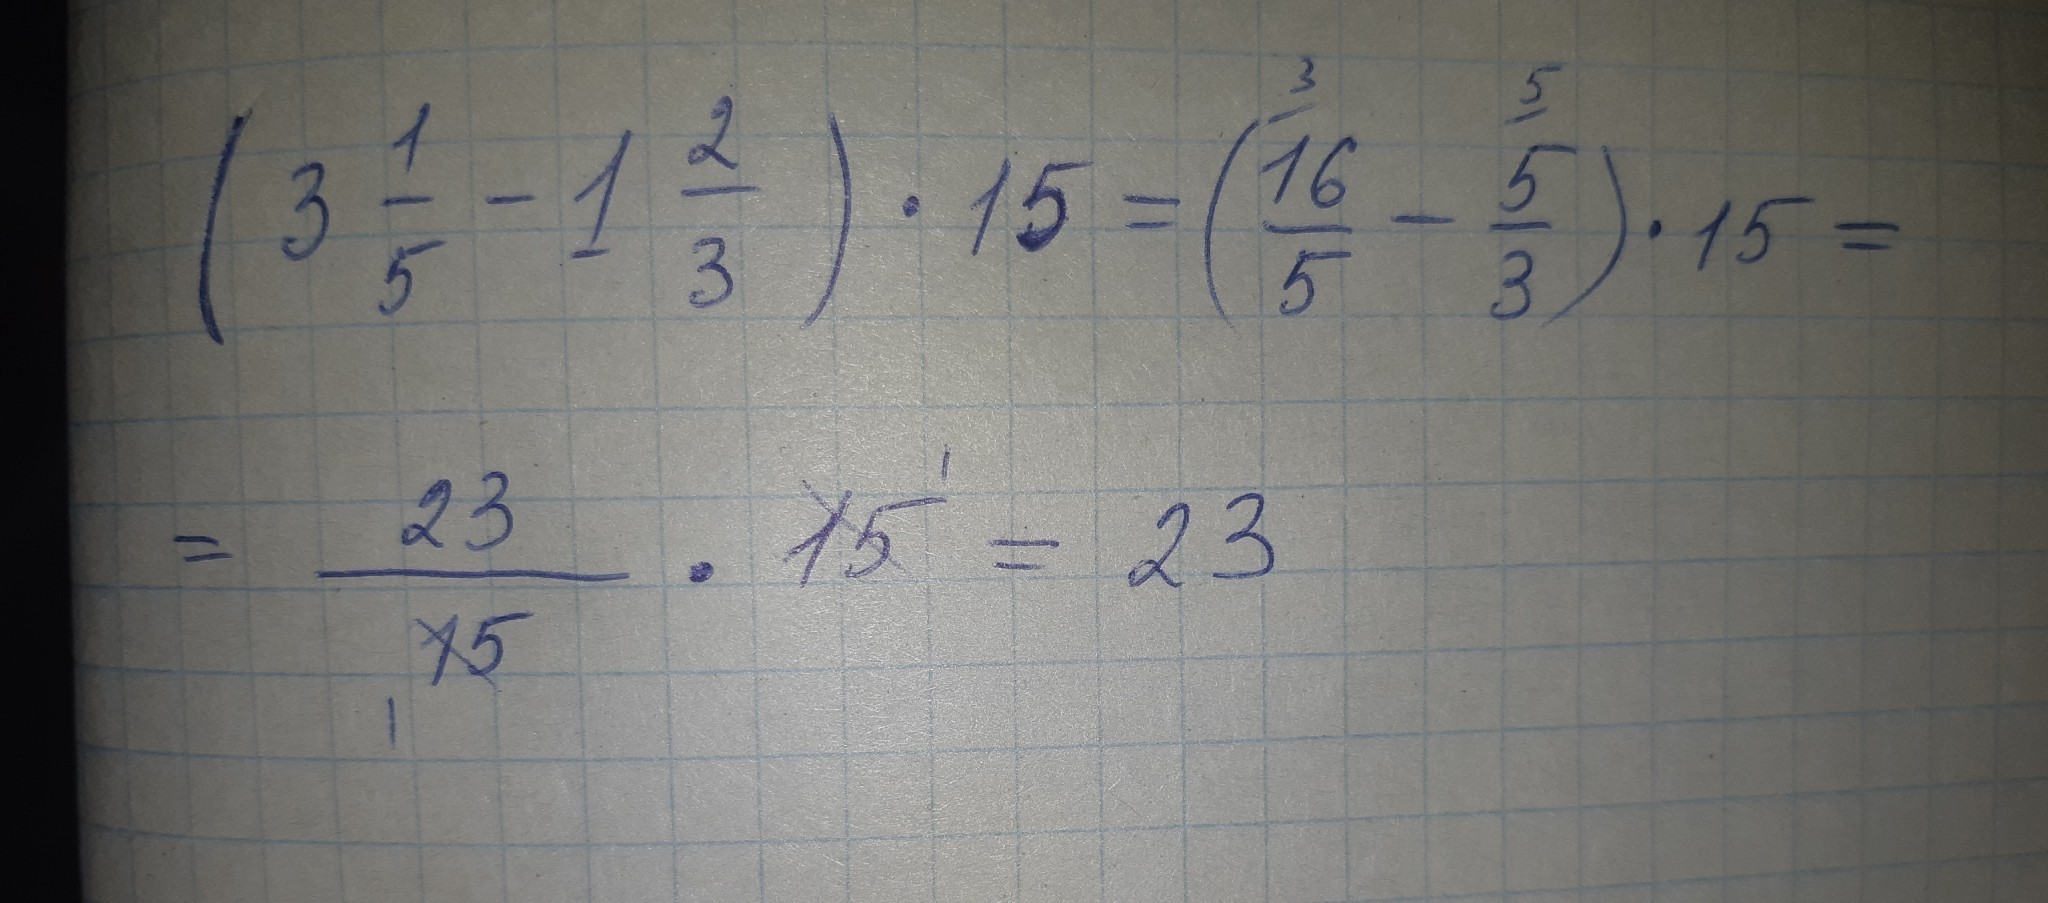 (3 1/5 - 1 2/3) · 15 = (16/5 ³ - 5/3 ⁵) · 15 =
= 23/15 1 · 15 1 = 23